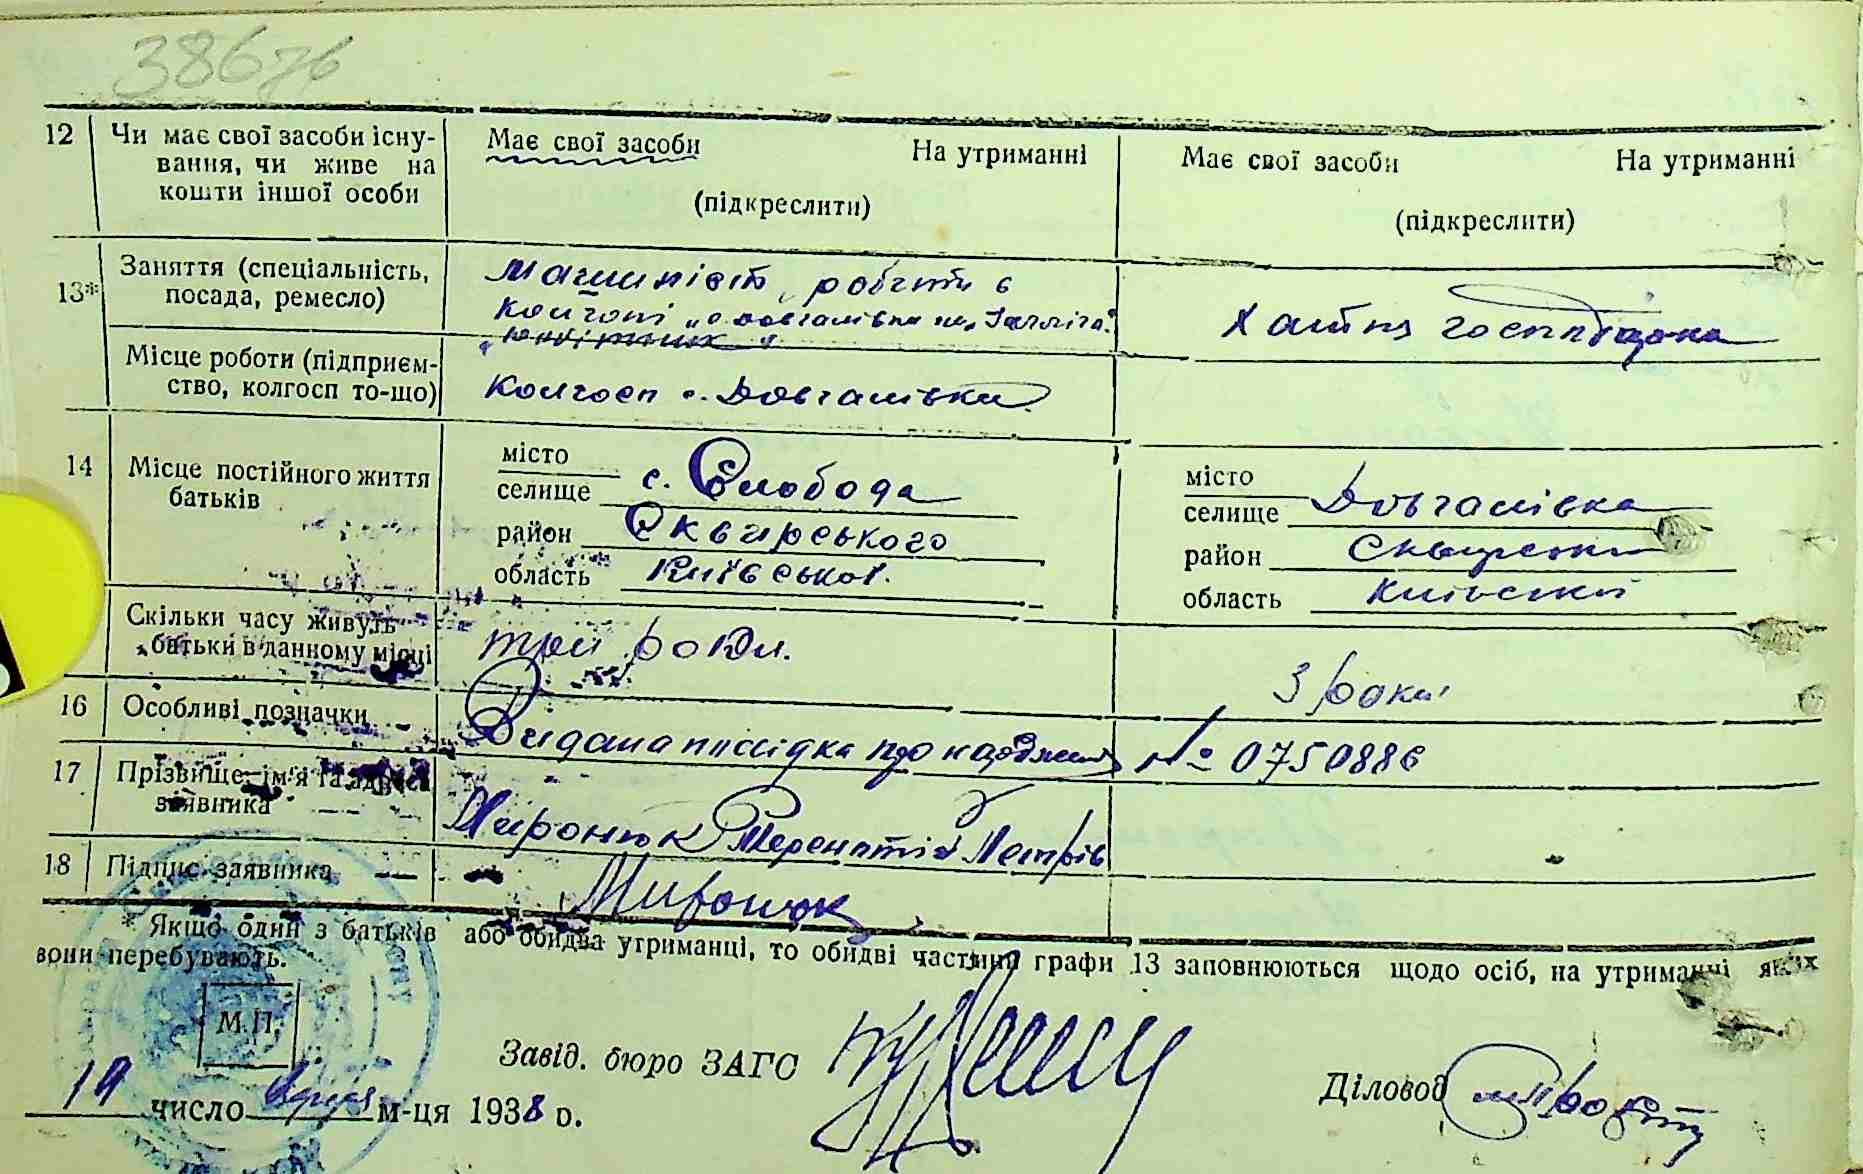 386зв
12 Чи має свої засоби існу- Має свої засоби На утриманні Має свої засоби На утриманні
вання, чи живе на
кошти іншої особи (підкреслити) (підкреслити)
13* Заняття (спеціальність, Машиніст, робить в
посада, ремесло) колгоспі с. Довгалівка Хатня господарка
Місце роботи (підприєм-
ство, колгосп то-що) Колгосп с. Довгалівки
14 Місце постійного життя місто місто
батьків селище с. Слобода селище Довгалівка
район Сквирського район Сквирський
область Київської. область Київської
Скільки часу живуть три роки. 3 роки
батьки в данному місці
16 Особливі позначки Видана посвідка про народження № 0750886
17 Прізвище, ім'я та адреса
заявника Миронюк Петрів
18 Підпис заявника Миронюк
* Якщо один з батьків або обидва утриманці, то обидві частини графи 13 заповнюються щодо осіб, на утриманні яких
вони перебувають.
М.П.
Завід. бюро ЗАГС Діловод
19 число серпня м-ця 1938 р.